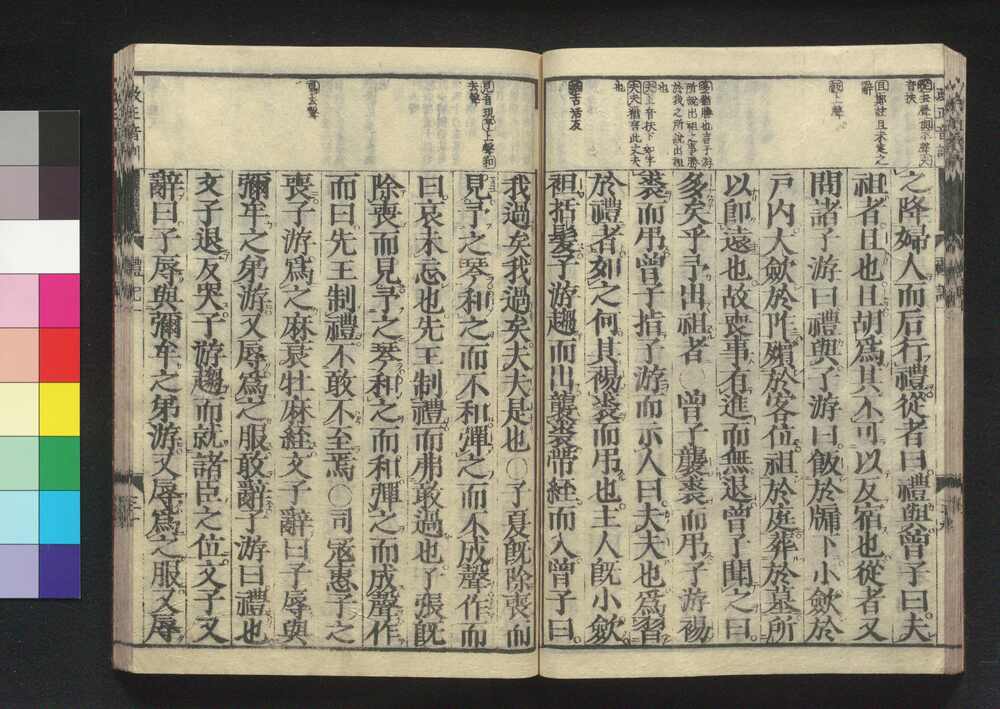 之降婦人而后行禮從者曰禮與曾子曰夫
祖者且也且胡爲其不可以反宿也從者又
問諸子游曰禮與子游曰飯於牖下小斂於
戸内大斂於阼殯於客位祖於庭葬於墓所
以即遠也故喪事有進而無退曾子聞之曰
多矣乎予出祖者○曾子襲裘而弔子游裼
裘而弔曾子指子游而示人曰夫夫也爲習
於禮者如之何其裼裘而弔也主人既小斂
袒括髮子游趨而出襲裘帶絰而入曾子曰
我過矣我過矣夫夫是也○子夏既除喪而
見予之琴和之而不和彈之而不成聲作而
曰哀未忘也先王制禮而弗敢過也子張既
除喪而見予之琴和之而和彈之而成聲作
而曰先王制禮不敢不至焉○司寇惠子之
喪子游爲之麻衰牡麻絰文子辭曰子辱與
彌牟之弟游又辱爲之服敢辭子游曰禮也
文子退反哭子游趨而就諸臣之位文子又
辭曰子辱與彌牟之弟游又辱爲之服又辱
且鄭註且未定之
辭
飯上聲
多猶勝也言子游
所說出祖之事勝
於我之所說出祖
也
夫夫猶言此丈夫
也
括古活反
見音現予上聲和
去聲
爲去聲
禮記